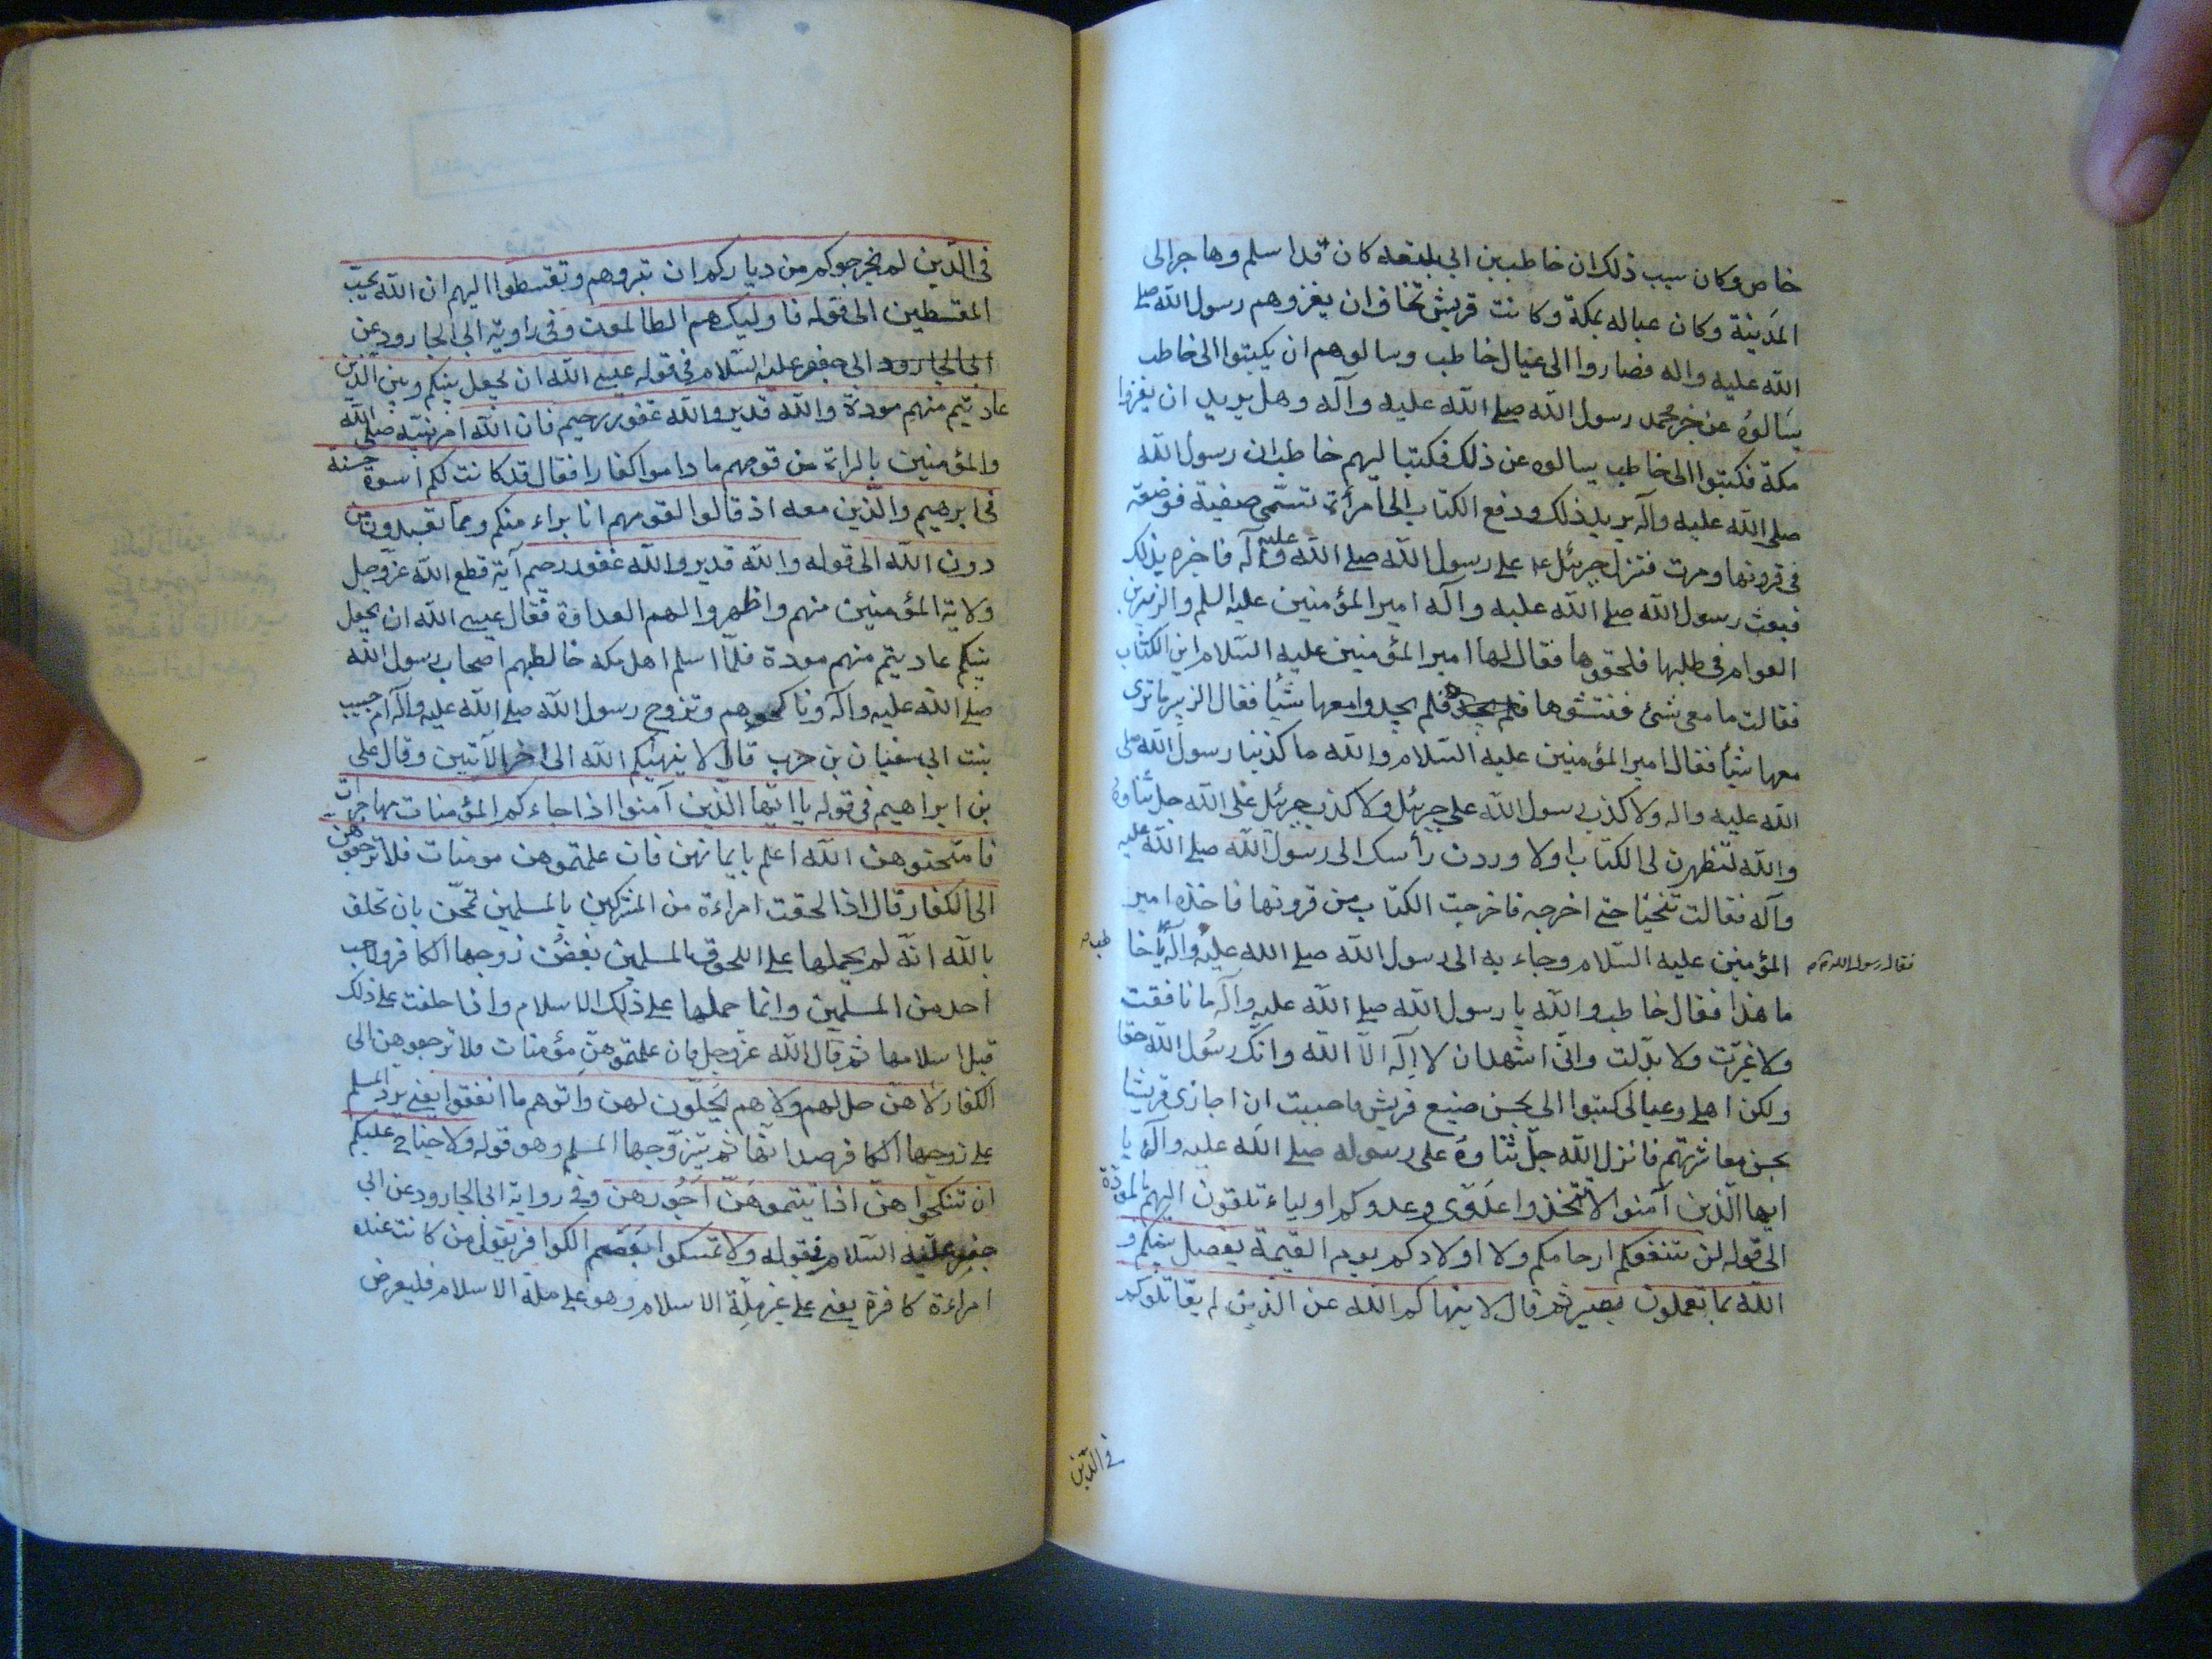 خاص وكان سبب ذلك ان خاطب بن ابي بلتعه كان قد اسلم وهاجر الى
المدينة وكان عياله بمكة وكانت قريش تخاف ان يغزوهم رسول الله صلى
الله عليه واله فصاروا الى عيال خاطب وسالوهم ان يكبتوا الى خاطب
يسالوه عن خبر محمد رسول الله صلى الله عليه وآله وهل يريد ان يغزوا
مكة فكتبوا الى خاطب يسالوه عن ذلك فكتب اليهم خاطب ان رسول الله
صلى الله عليه وآله يريد ذلك ودفع الكتاب الى امرأة تسمى صفية فوضعته
فى قرونها ومرت فنزل جبرئيل ع على رسول الله صلى الله عليه وآله فاخبره بذلك
فبعث رسول الله صلى الله عليه وآله امير المؤمنين عليه السلم والزبير بن
العوام فى طلبها فلحقوها فقال لها امير المؤمنين عليه السلام اين الكتاب
فقالت ما معى شئ ففتشوها فلم يجدوا معها شيأ فقال الزبير ما نرى
معها شيأ فقال امير المؤمنين عليه السلام والله ما كذبنا رسول الله صلى
الله عليه واله ولا كذب رسول الله على جبرئيل ولا كذب جبرئيل على الله جل ثناؤه
والله لتظهرن لى الكتاب او لا وردن رأسك الى رسول الله صلى الله عليه
وآله فقالت تنحيا حتى اخرجه فاخرجت الكتاب من قرونها فاخذه امير
المؤمنين عليه السلام وجاء به الى رسول الله صلى الله عليه وآله يا خا
طب
فقال رسول الله
ما هذا فقال خاطب والله يا رسول الله صلى الله عليه وآله ما نافقت
ولا غيرت ولا بدلت وانى اشهد ان لا اله الا الله وانك رسول الله حقا
ولكن اهلى وعيالى كبتوا الى بحسن صنيع قريش فاحببت ان اجازى قريشا
بحسن معاشرتهم فانزل الله جل ثناؤه على رسوله صلى الله عليه وآله يا
ايها الذين آمنوا لا تتخذوا عدوى وعدوكم اولياء تلقون اليهم بالمودة
الى قوله لن تنفعكم ارحامكم ولا اولادكم يوم القيمة يفصل بينكم و
الله بما تعملون بصير ثم قال لا ينهاكم الله عن الذين لم يقاتلوكم
فى الدين
فى الدين لم يخرجوكم من دياركم ان تبروهم وتقسطوا اليهم ان الله يحب
المقسطين الى قوله فاوليك هم الظالمون وفى راوية ابى الجارود عن
ابى الجارود ابى جعفر عليه السلام فى قوله عسى الله ان يجعل بينكم وبين الذين
عاديتم منهم مودة والله قدير والله غفور رحيم فان الله امر نبيه صلى الله
والمؤمنين بالبراة من قومهم ما داموا كفارا فقال قد كانت لكم اسوة حسنة
فى ابرهيم والذين معه اذ قالوا لقومهم انا براء منكم ومما تعبدون من
دون الله الى قوله والله قدير والله غفور رحيم آية قطع الله عز وجل
ولاية المؤمنين منهم واظهروا لهم العداوة فقال عيسى الله ان يجعل
بينكم عاديتم منهم مودة فلما اسلم اهل مكه خالطهم اصحاب رسول الله
صلى الله عليه وآله وناكحوهم وتزوج رسول الله صلى الله عليه وآله ام حبيب
بنت ابى سفيان بن حرب قال لا ينهيكم الله الى اخر الآيتين وقال على
بن ابراهيم فى قوله يا ايها الذين آمنوا اذا جاءكم المؤمنات مهاجرات
فامتحنوهن الله اعلم بايمانهن فان علمتموهن مومنات فلا ترجعوهن
الى الكفار قال اذا لحقت امراءة من المشركين بالمسلمين تمتحن بان تحلف
بالله انه لم يحملها على اللحوق بالمسلمين بغض زوجها الكافر ولا حب
احد من المسلمين وانما حملها على ذلك الاسلام واذا حلفت على ذلك
قبل اسلامها ثم قال الله عز وجل فان علمتموهن مؤمنات فلا ترجعوهن الى
الكفار لا هن حل لهم ولا هم يحلون لهن واتوهم ما انفقوا يعنى يرد المسلم
على زوجها الكافر صداقها ثم يتزوجها المسلم وهو قوله ولا جناح عليكم
ان تنكحوا هن اذا تيتموهن اجورهن وفى رواية ابى الجارود عن ابى
جعفر عليه السلام فى قوله ولا تمسكوا بعصم الكوافر يقول من كانت عنده
امراءة كافرة يعنى على غير ملة الاسلام وهو على ملة الاسلام فليعرض